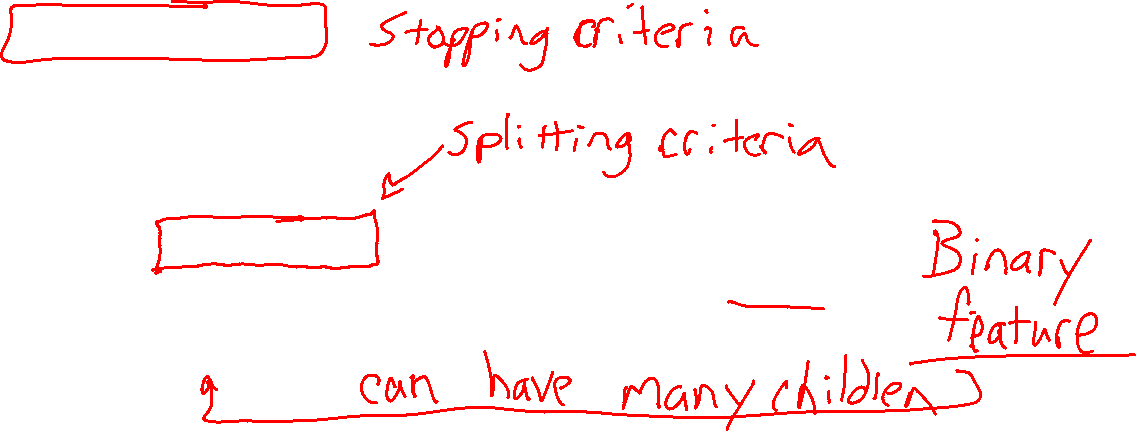 Stopping criteria
Splitting criteria
Binary
feature
can have many children